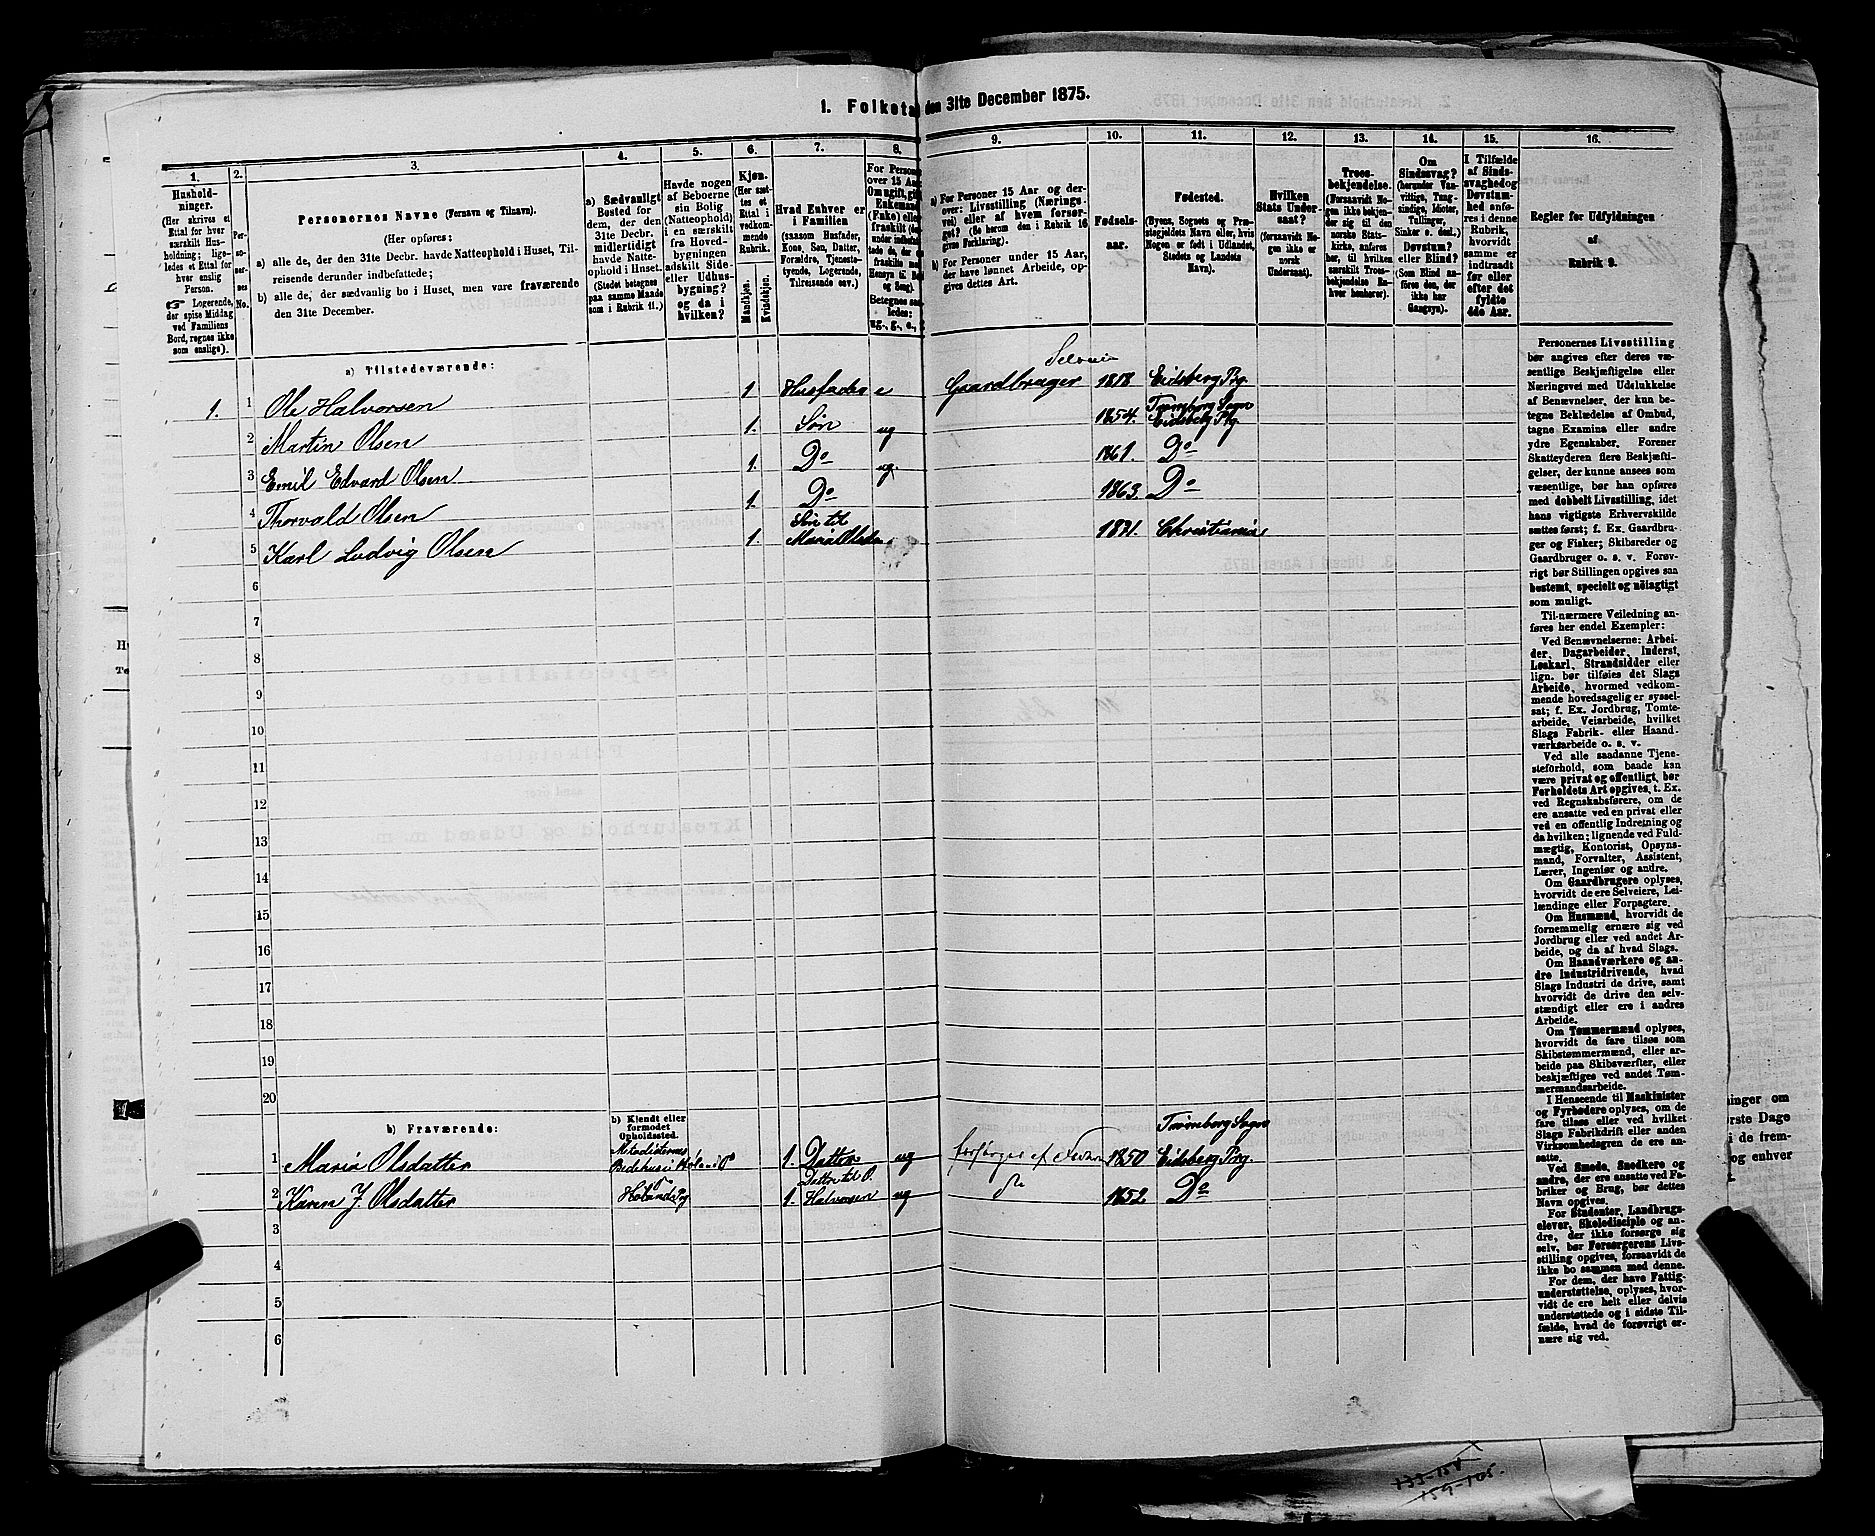 1. Folketæ
den 31te December 1875.
1.
Hushold-
ninger.
(Her skrives et
Ettal for hver
særskilt Hus-
holdning; lige-
ledes et Ettal for
hver enslig
Person.
☞ Logerende,
der spise Middag
ved Familiens
Bord, regnes ikke
som enslige).
2.
Per-
so-
ner-
nes
No.
3.
Personernes Navne (Fornavn og Tilnavn).
(Her opføres:
a) alle de, der den 31te Decbr. havde Natteophold i Huset, Til-
reisende derunder indbefattede;
b) alle de, der sædvanlig bo i Huset, men vare fraværende
den 31te December.
4.
a) Sædvanligt
Bosted for
dem, der den
31te Decbr.
midlertidigt
havde Natte-
ophold i Huset.
(Stedet betegnes
paa samme Maade
som i Rubrik 11.)
5.
Havde nogen
af Beboerne
sin Bolig
(Natteophold)
i en særskilt
fra Hoved-
bygningen
adskilt Side-
eller Udhus-
bygning?
og da i
hvilken?
6.
Kjøn.
(Her sæt-
tes et
Ettal i
vedkom-
mende
Rubrik.
Mandkjøn.
Kvindekjøn.
7.
Hvad Enhver er
i Familien
(saasom Husfader,
Kone, Søn, Datter,
Forældre, Tjeneste-
tyende, Logerende,
Tilreisende osv.)
8.
For Person
over 15 Aar
Om ugift, gift
Enkemand
(Enke) eller
fraskilt
Betegnes saa-
ledes:
ug., g., e.,
9.
a) For Personer 15 Aar og der-
over: Livsstilling (Nærings-
vei) eller af hvem forsør-
get? (Se herom den i Rubrik 16
givne Forklaring).
b) For Personer under 15 Aar,
der have lønnet Arbeide, op-
gives dettes Art.
10.
Fødsels-
aar.
11.
Fødested.
(Byens, Sognets og Præ-
stegjeldets Navn eller, hvis
Nogen er født i Udlandet,
Stedets og Landets
Navn).
12.
Hvilken
Stats Under-
saat?
(forsaavidt No-
gen ikke er
norsk
Undersaat).
13.
Troes-
bekjendelse.
(Forsaavidt No-
gen ikke bekjen-
der sig til den
norske Stats-
kirke, anføres
her, til hvilken
særskilt Troes-
bekjendelse En-
hver henhører).
14.
Om
Sindssvag?
(herunder Van-
vittige, Tung-
sindige, Idioter,
Tullinger,
Sinker o. desl.)
Døvstum?
eller Blind?
(Som Blind an-
føres den, der
ikke har
Gangsyn).
15.
I Tilfælde
af Sinds-
svaghed og
Døvstum-
hed anfø-
res i denne
Rubrik,
hvorvidt
samme er
indtraadt
før eller
efter det
fyldte
4de Aar.
16.
Regler for Udfyldningen
af
Rubrik 9.
a) Tilstedeværende:
Selveier
1. 1 Ole Halvorsen 1 Husfader e Gaardbruger 1818 Eidsberg Prg.
Trømborg Sogn
2 Martin Olsen 1. Søn ug 1854. Eidsberg Prg.
3 Emil Edvard Olsen 1. Do ug. 1861. Do
4 Thorvald Olsen 1. Do 1863. Do
Søn til
5 Karl Ludvig Olsen 1. Maria Olsdtr. 1871. Christiania
6
7
8
9
10
11
12
13
14
15
16
17
18
19
20
b) Fraværende:
b) Kjendt eller
formodet
Opholdssted.
Trømborg Sogn
Metodisternes
1 Maria Olsdatter Bedehus i Høland P 1. Datter ug forsørges af Faderen 1850 Eidsberg Prg.
Datter til O.
2 Karen J. Olsdatter Hølands Pg 1. Halvorsen ug do 1852 Do
3
4
5
6
Personernes Livsstilling
bør angives efter deres væ-
sentlige Beskjæftigelse eller
Næringsvei med Udelukkelse
af Benævnelser, der kun be-
tegne Beklædelse af Ombud,
tagne Examina eller andre
ydre Egenskaber. Forener
Skatteyderen flere Beskjæfti-
gelser, der kunne ansees som
væsentlige, bør han opføres
med dobbelt Livsstilling, idet
hans vigtigste Erhvervskilde
sættes først; f. Ex. Gaardbru-
ger og Fisker; Skibsreder og
Gaardbruger o. s. v. Forøv-
rigt bør Stillingen opgives saa
bestemt, specielt og nøiagtigt
som muligt.
Til nærmere Veiledning an-
føres her endel Exempler:
Ved Benævnelserne: Arbei-
der, Dagarbeider, Inderst,
Løskarl, Strandsidder eller
lign. bør tilføies det Slags
Arbeide, hvormed vedkom-
mende hovedsagelig er syssel-
sat; f. Ex. Jordbrug, Tomte-
arbeide, Veiarbeide, hvilket
Slags Fabrik- eller Haand-
værksarbeide o. s. v.
Ved alle saadanne Tjene-
steforhold, som baade kan
være privat og offentligt, bør
Forholdets Art opgives, t. Ex.
ved Regnskabsførere, om de
ere ansatte ved en privat eller
ved en offentlig Indretning og
da hvilken; lignende ved Fuld-
mægtig, Kontorist, Opsyns-
mand, Forvalter, Assistent,
Lærer, Ingeniør og andre.
Om Gaardbrugere oplyses,
hvorvidt de ere Selveiere, Lei-
lændinge eller Forpagtere.
Om Husmænd, hvorvidt de
fornemmelig ernære sig ved
Jordbrug eller ved andet Ar-
beide, og da af hvad Slags.
Om Haandværkere og an-
dre Industridrivende, hvad
Slags Industri de drive, samt
hvorvidt de drive den selv-
stændigt eller ere i andres
Arbeide.
Om Tømmermænd oplyses,
hvorvidt de fare tilsøs som
Skibstømmermænd, eller ar-
beide paa Skibsværfter, eller
beskjæftiges ved andet Tøm-
mermandsarbeide.
I Henseende til Maskinister
og Fyrbødere oplyses, om de
fare tilsøs eller ved hvilket
Slags Fabrikdrift eller anden
Virksomhedsgren de ere an-
satte.
Ved Smede, Snedkere og
andre, der ere ansatte ved Fa-
briker og Brug, bør dettes
Navn opgives.
For Studenter, Landbrugs-
elever, Skoledisciple og an-
dre, der ikke forsørge sig
selv, bør Forsørgerens Livs-
stilling opgives, forsaavidt de
ikke bo sammen med denne.
For dem, der have Fattig-
understøttelse, oplyses, hvor-
vidt de ere helt eller delvis
understøttede og i sidste Til-
fælde, hvad de forøvrigt er-
nære sig ved.
ninger om
ørste Dage
i de frem-
og enhver
133-158
159-105.